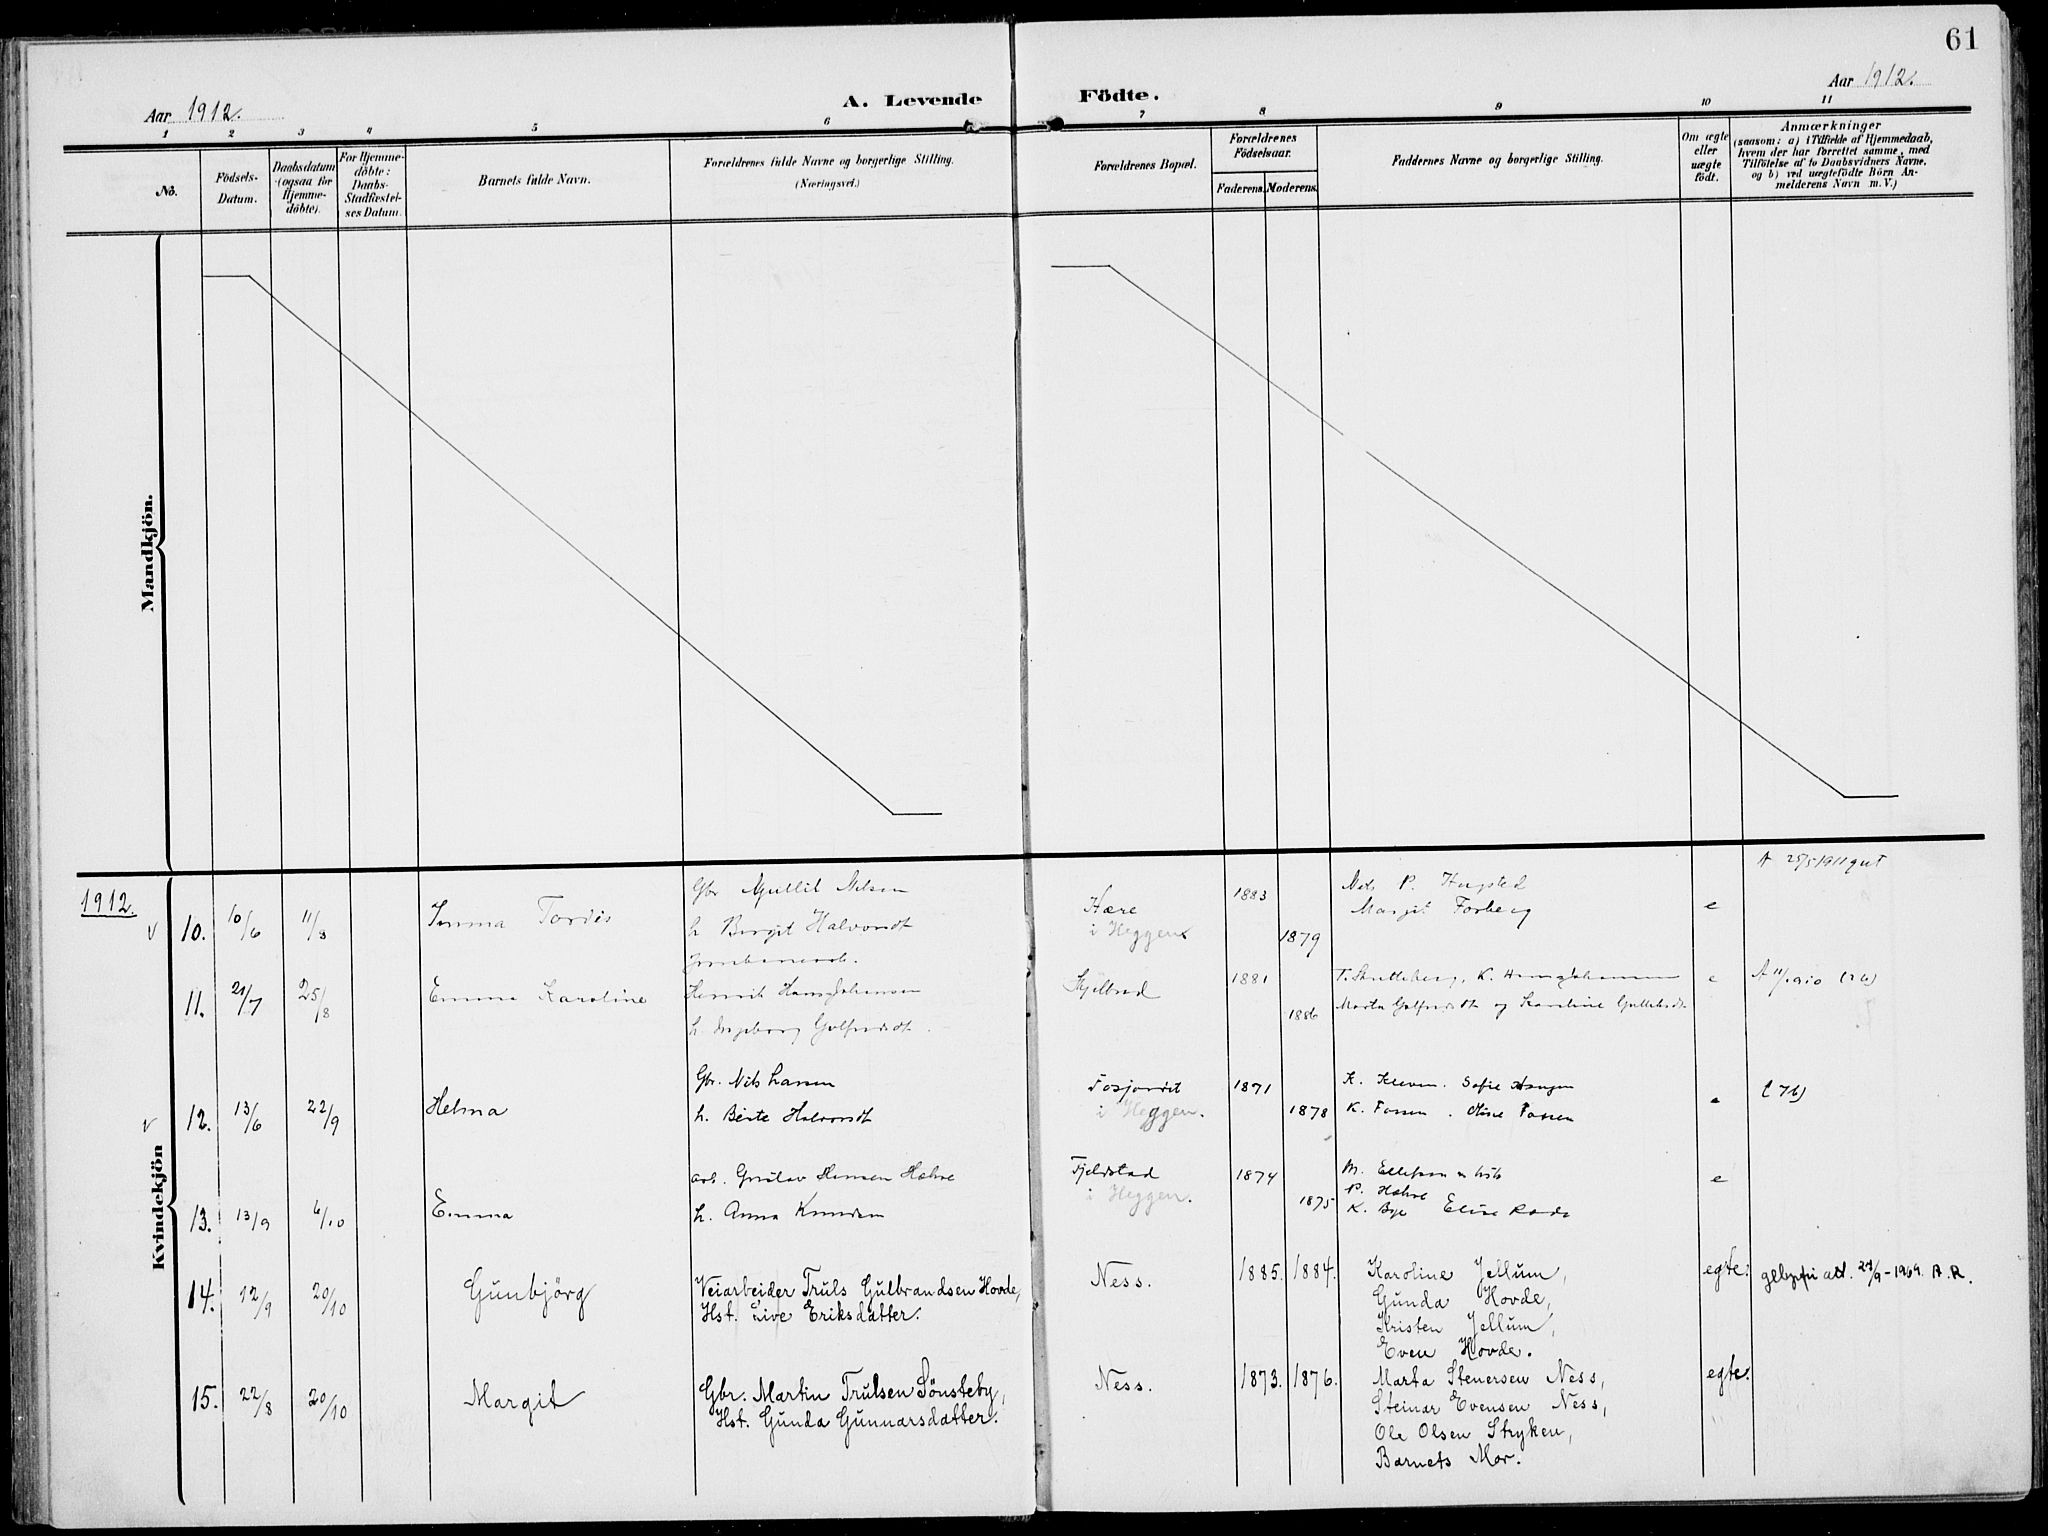 61
Aar 1912.
A. Levende Födte.
Aar 1912.
1 2 3 4 5 6 7 8 9 10 11
No.
Födsels-
Datum.
Daabsdatum
(ogsaa for
Hjemme-
döbte).
For Hjemme-
döbte:
Daabs-
Stadfæstel-
ses Datum.
Barnets fulde Navn.
Forældrenes fulde Navne og borgerlige Stilling.
(Næringsvei.)
Forældrenes Bopæl.
Forældrenes
Födselsaar.
Faderens. Moderens.
Faddernes Navne og borgerlige Stilling.
Om ægte
eller
uægte
födt.
Anmærkninger
(saasom: a) i Tilfælde af Hjemmedaab,
hvem der har forrettet samme, med
Tilföielse af to Daabsvidners Navne,
og b) ved uægtefödte Börn An-
melderens Navn m. V.)
Mandkjön.
Kvindekjön
1912.
10. 10/6 11/8 Tordis
Gbr Nilsen
h. Birgit Halvorsdt
Hære
i Heggen
1883
1879
Nels P.
Margit Forberg
e
11. 21/7 25/8 Emma Karoline
Henrik Hans Johansen
h. Ingeborg
1881
1886
e
12. 13/6 22/9 Helma
Gbr. Nils Larsen
h. Berte Halvorsdt
i Heggen.
1871
1878
K. Kleven. Sofie Haugen
K. Fossen. Fossen
e
(76)
13. 13/9 6/10 Emma
arb. Gustav Hansen
h. Anna Knudsen
Fjeldstad
i Heggen.
1874
1875
M. Ellefsen
P.
K. Bye Elise
e
14. 12/9 20/10 Gunbjörg
Veiarbeider Truls Gulbrandsen Hovde,
Hst. Live Eriksdatter.
Ness.
1885. 1884.
Karoline Jellum,
Gunda Hovde,
Kristen Jellum,
Even Hovde.
egte.
att. 24/9-1969. A.R.
15. 22/8 20/10 Margit
Gbr. Martin Trulsen Sönsteby,
Hst. Gunda Gunnarsdatter.
Ness.
1873. 1876.
Marta Stenersen Ness,
Steinar Evensen Ness,
Ole Olsen Stryken,
Barnets Mor.
egte.